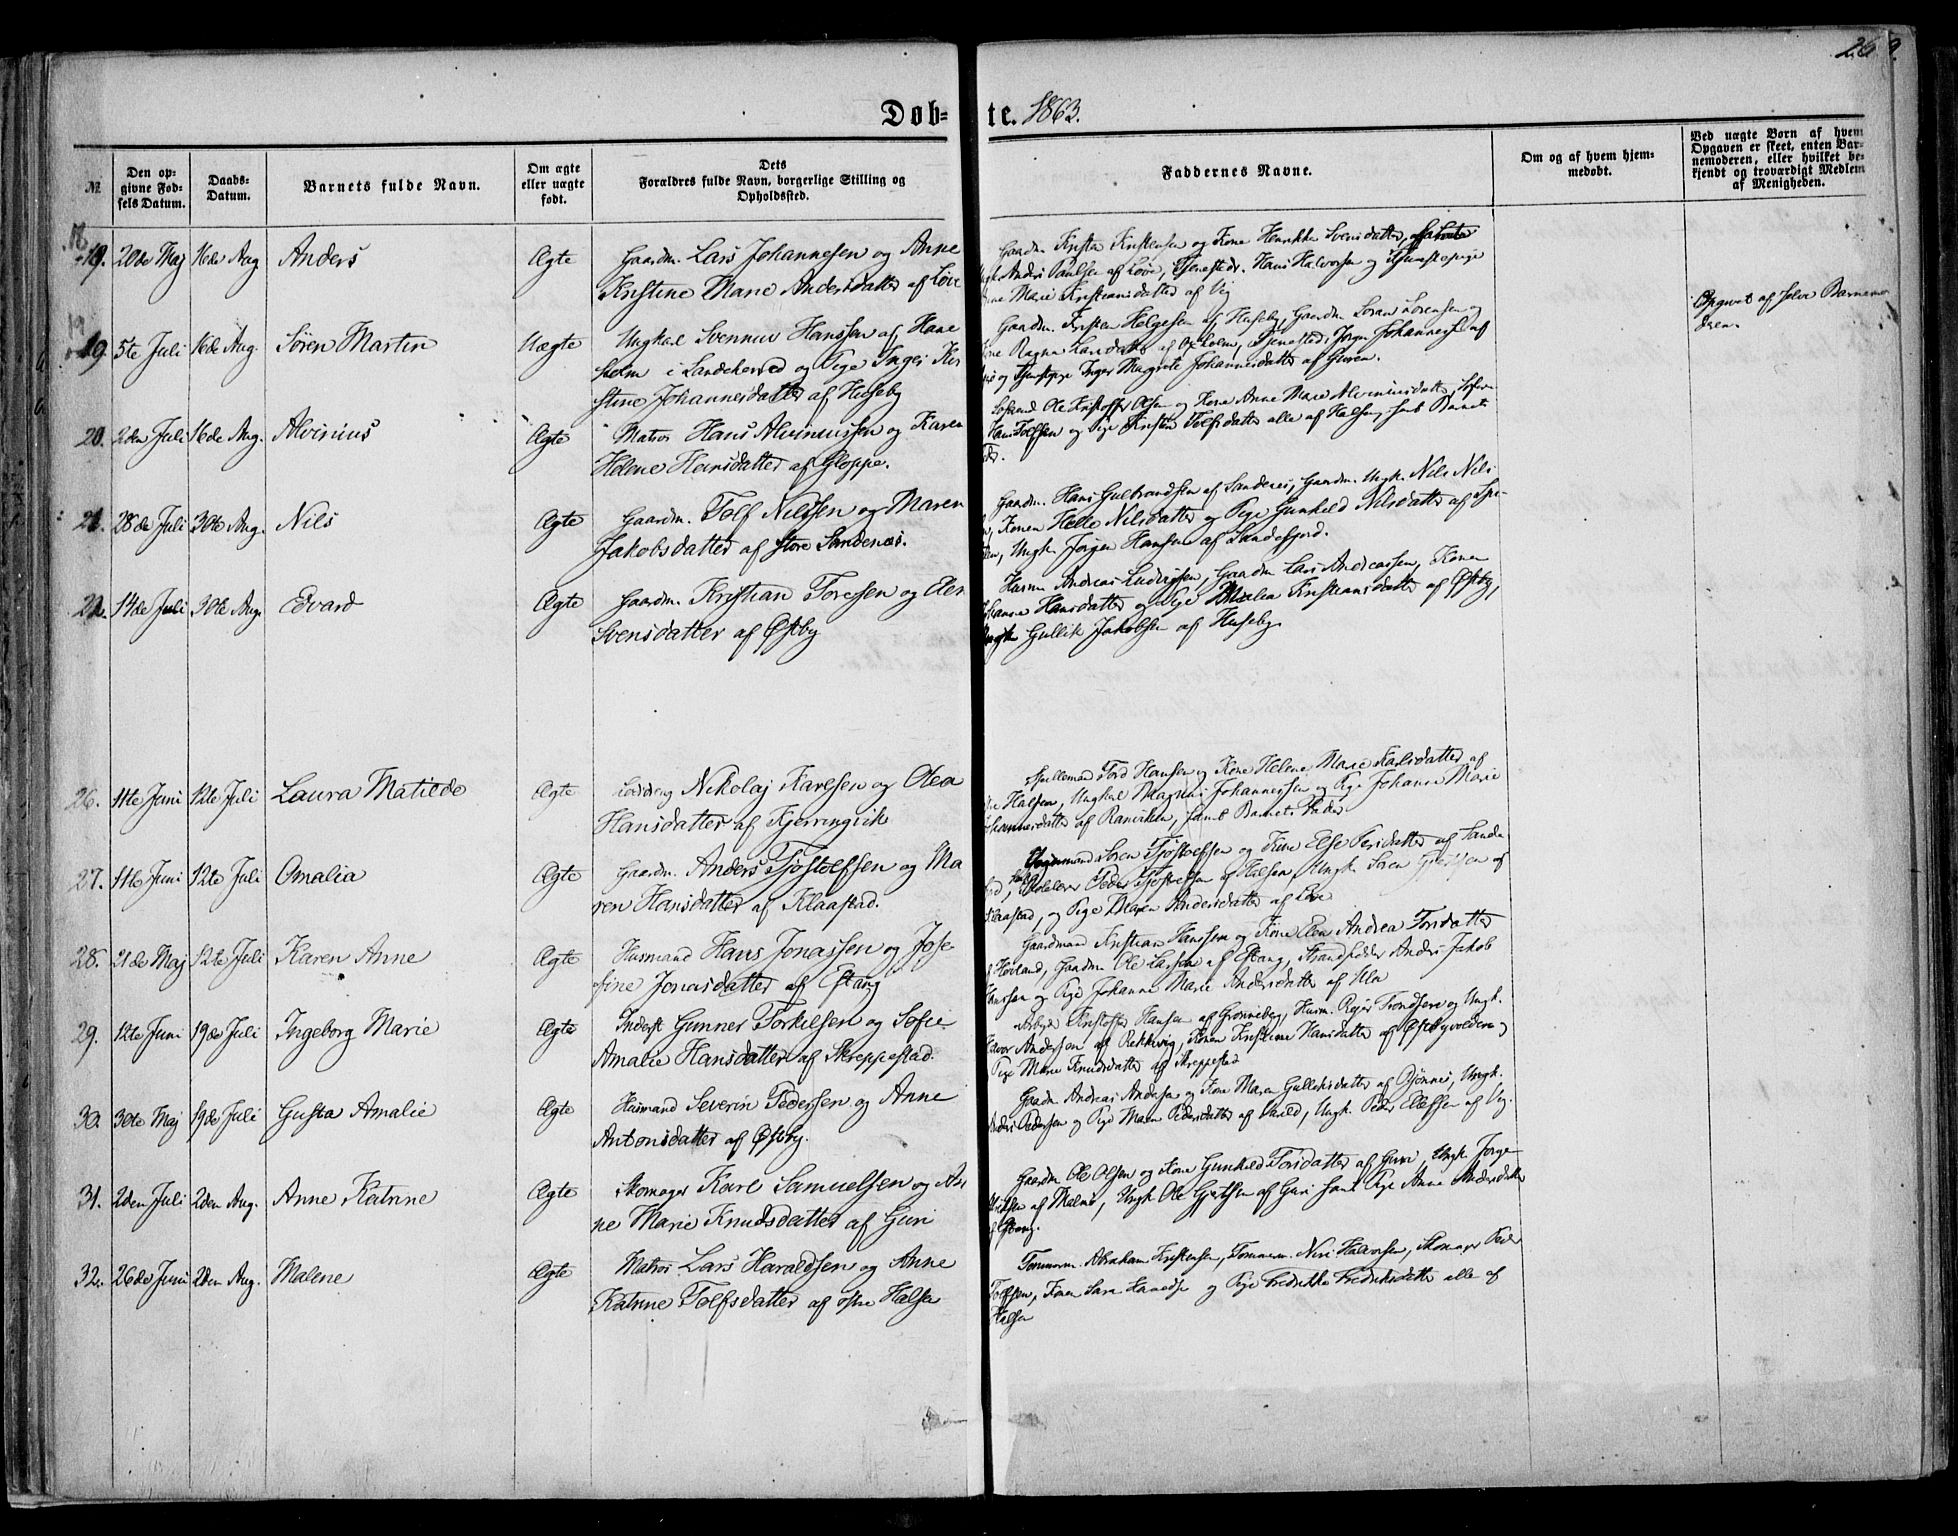 269.
Døb-te. 1863.
№
Den opgivne Fødsels Datum.
Daabs-Datum.
Barnets fulde Navn.
Om ægte eller uægte født.
Dets Forældres fulde Navn, borgerlige Stilling og Opholdssted.
Faddernes Navne.
Om og af hvem hjemmedøbt.
Ved uægte Børn af hvem Opgaven er skeet, enten Barnemoderen, eller hvilket bekjendt og troværdigt Medlem af Menigheden.
18. 20de Maj 16de Aug Anders Ægte Gaardm. Lars Johannesen og Anne
Kristine Marie Andersdatter af Løve
Gaardm. Kristen Kristensen og Kone Henrikka Svensdatter,
Ungk Anders Paulsen af Løve, Tjenestedr. Hans Halvorsen og Tjenestepige
Anne Marie Kristiansdatter af Vig
19. 5te Juli 16de Aug Søren Martin Uægte Ungkal Svennus Hanssen af Hane
holm i Sandeherred og Pige Inger Kir
stine Johannesdatter af Huseby
Gaardm. Kristen Helgesen af Huseby, Gaardm Søren Sørensen og
Kone Ragna Larsdatter af Oxholm, Tjenestedr. Jørgen Johannesen af
og Tjenstepige Inger Magrete Johannesdatter af Guren.
Opgivet af selve Barnemo
deren
20. 2den Juli 16de Aug. Alvinius Ægte Matros Hans Alvinussen og Karen
Helene Hansdatter af Gloppe.
Søfrmd Ole Kristoffer Olsen og Kone Anne Marie Alviniusdatter,
Hans Tolfsen og Pige Kirsten Tolfsdatter alle af Halsen, samt Barnets
Fader.
21. 28de Juli 30te Aug. Nils Ægte Gaardm. Tolf Nilssen og Maren
Jakobsdatter af store Sandenæs.
Gaardm. Hans Gulbrandsen af Sandenæs, Gaardm. Ungk. Nils Nils
Konen Helle Nilsdatter og Pige Gunhild Nilsdatter af
Ungk. Jørgen Hansen af Sandefjord.
22. 14de Juli 30te Aug. Edvard Ægte Gaardm. Kristian Toresen og Elen
Svensdatter af Østby
Husm Andreas Ludvigsen, Gaardm Lars Andreassen, Konen
Johanne Hansdatter og Pige Malea Kristiansdatter af Østby,
Ungk Gullik Jakobsen af Huseby
26. 11te Juni 12te Juli Laura Matilde Ægte Nikolaj Karlsen og Olea
Hansdatter af Kjerringvik
Spillemand Tord Hansen og Kone Helene Marie Karlsdatter af
Halsen, Ungkal Magnus Johannessen og Pige Johanne Marie
Johannesdatter af Ranviken, samt Barnets Fader
27. 11te Juni 12te Juli Omalia Ægte Gaardm. Anders Tjøstolfsen og Ma
ren Hansdatter af Klaastad.
Søren Tjøstolfsen og Kone Else Persdatter af Sande
Peder Tjøstolfsen af Halsen, Ungk Søren af
Klaastad, og Pige Maren Andersdatter af Løve
28. 21de Maj 12te Juli Karen Anne Ægte Husmand Hans Jonassen og Jose
fine Jonasdatter af Eftang
Gaardmand Kristian Hanssen og Kone Elen Andrea Torsdatter
af Høiland, Gaardm Ole Larsen af Eftang, Strandsidder Anders Jakob
Hanssen og Pige Johanne Marie Andersdatter af Ula
29. 12te Juni 19de Juli Ingeborg Marie Ægte Inderst Gunner Torkilsen og Sofie
Amalie Hansdatter af Skreppestad.
Arbejd Kristoffer Hansen af Grønneberg, Husm. Rejer Trondsen og Ungk.
Halvor Andersen af Rekkevig, Konen Kristine Hansdatter af Østbyvolden og
Pige Marie Knudsdatter af Skreppestad
30. 30te Maj 19de Juli Gusta Amalie Ægte Husmand Severin Pedersen og Anne
Antonsdatter af Østby.
Gaardm Andreas Andersen og Kone Maren Gulliksdatter af Bjønnes, Ungk.
Anders Pedersen og Pige Maren Pedersdatter af, Ungk. Peder Ellefsen af Vig.
31. 2den Juli 2den Aug. Anne Katrine Ægte Skomager Karl Samuelsen og An
ne Marie Knudsdatter af Guri
Gaardm Ole Olsen og Kone Gunhild Torsdatter af Guri, Ungk Jørge
af Malmø, Ungk Ole Gjertsen af Guri samt Pige Anne Andersdatter
af Eftang.
32. 26de Juni 2den Aug. Malene Ægte Matros Lars Haraldsen og Anne
Katrine Tolfsdatter af østre Halsen
Tømmerm. Abraham Kristensen, Tømmerm. Nils Halvorsen, Skomager Peder
Tolfsen, Konen Sara og Pige Fredrikke Fredriksdatter alle af
Halsen